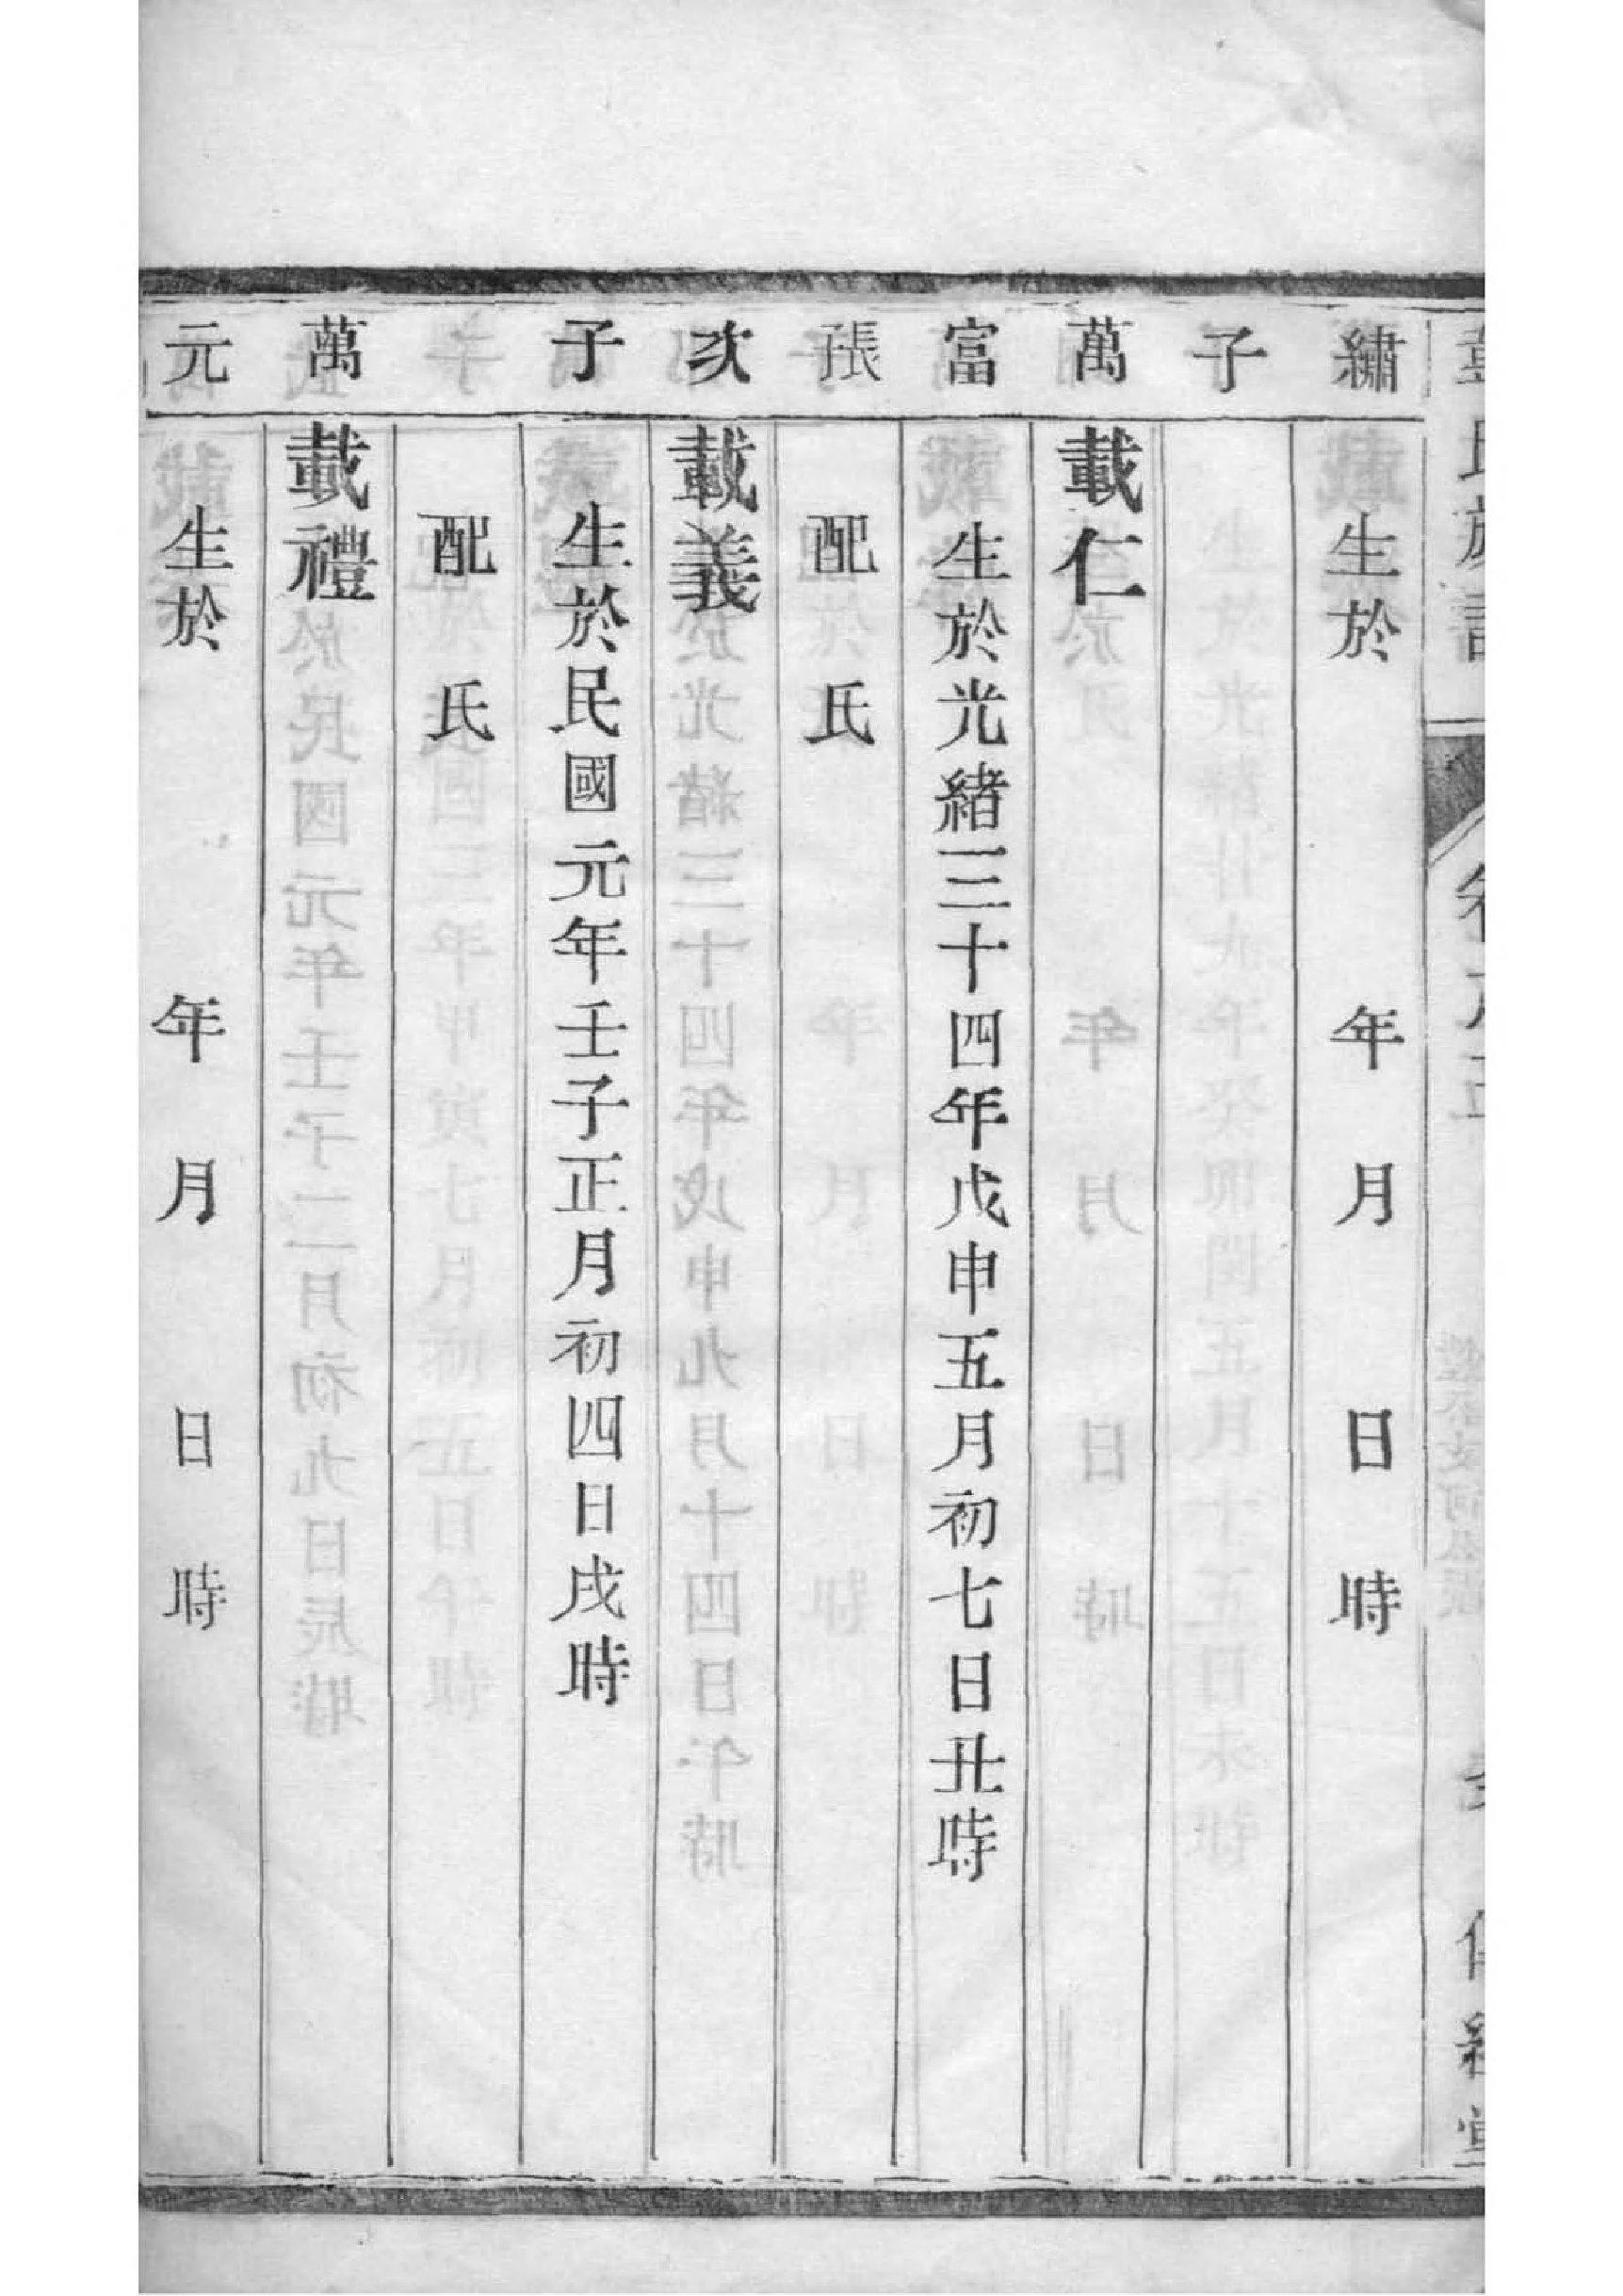 繡 生於 年 月 日 時
子
萬 載仁
富 生於光緒三十四年戊申五月初七日丑時
張 配 氏
次 載義
子 生於民國元年壬子正月初四日戌時
配 氏
萬 載禮
元 生於 年 月 日 時